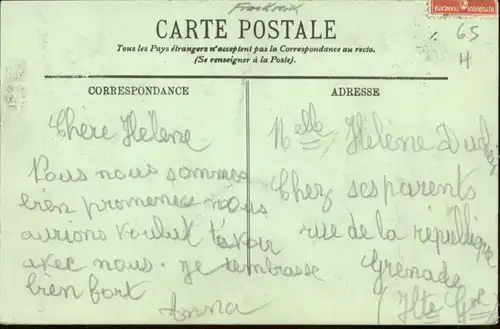 Frankreich
CARTE POSTALE
Tous les Pays étrangers n'acceptent pas la Correspondance au recto.
(Se renseigner à la Poste).
65
H
CORRESPONDANCE
Chère Hélène
Nous nous sommes
bien promenées nous
aurions voulut t'avoir
avec nous. je t'embrasse
bien fort
Anna
ADRESSE
Melle Hélène
Chez ses parents
rue de la république
Grenade
Hte Gne